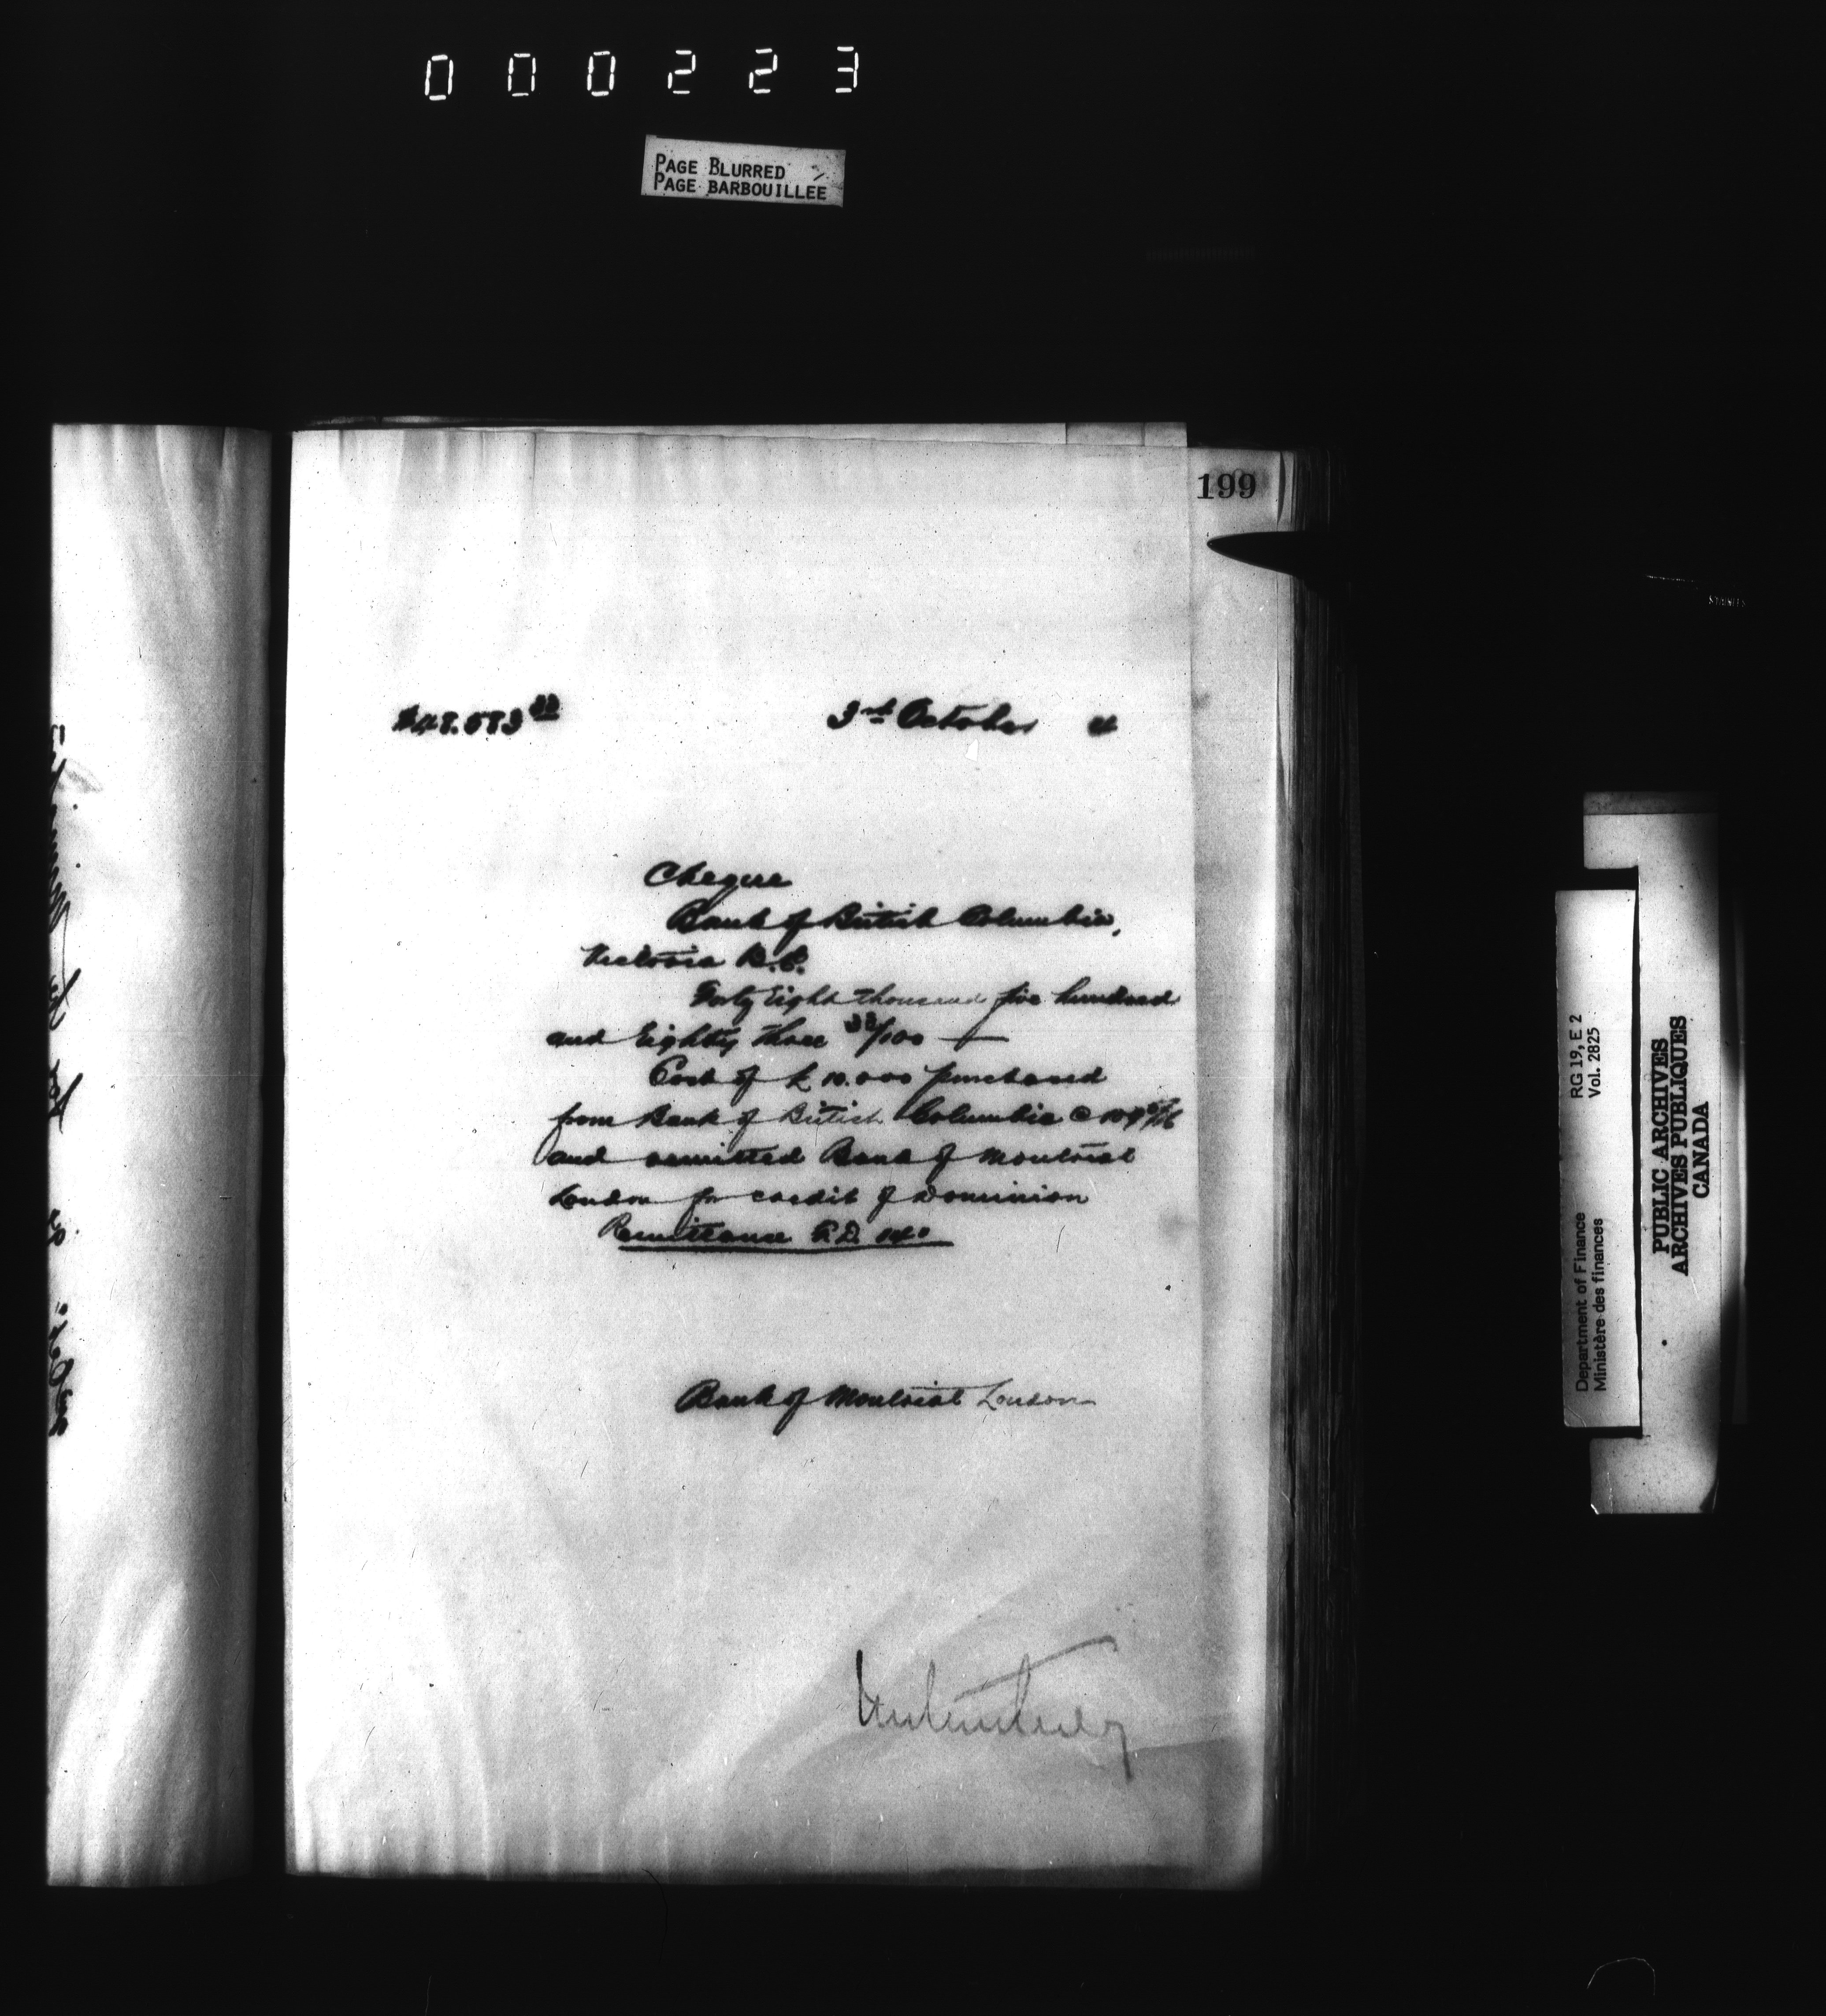 000223
PAGE BLURRED
PAGE BARBOUILLEE
199
$48.583 33
3rd October 4
Cheque
Bank of British Columbia,
Victoria B.C.
Forty Eight thousand five hundred
and Eighty three 33/100
Cost of £ 10.000 purchased
from Bank of British Columbia @ 109 5/16
and remitted Bank of Montreal
London for credit of Dominion
Remittance F.D. 140
Bank of Montreal London
RG 19, E 2
Vol. 2825
Department of Finance
Ministère des finances
PUBLIC ARCHIVES
ARCHIVES PUBLIQUES
CANADA